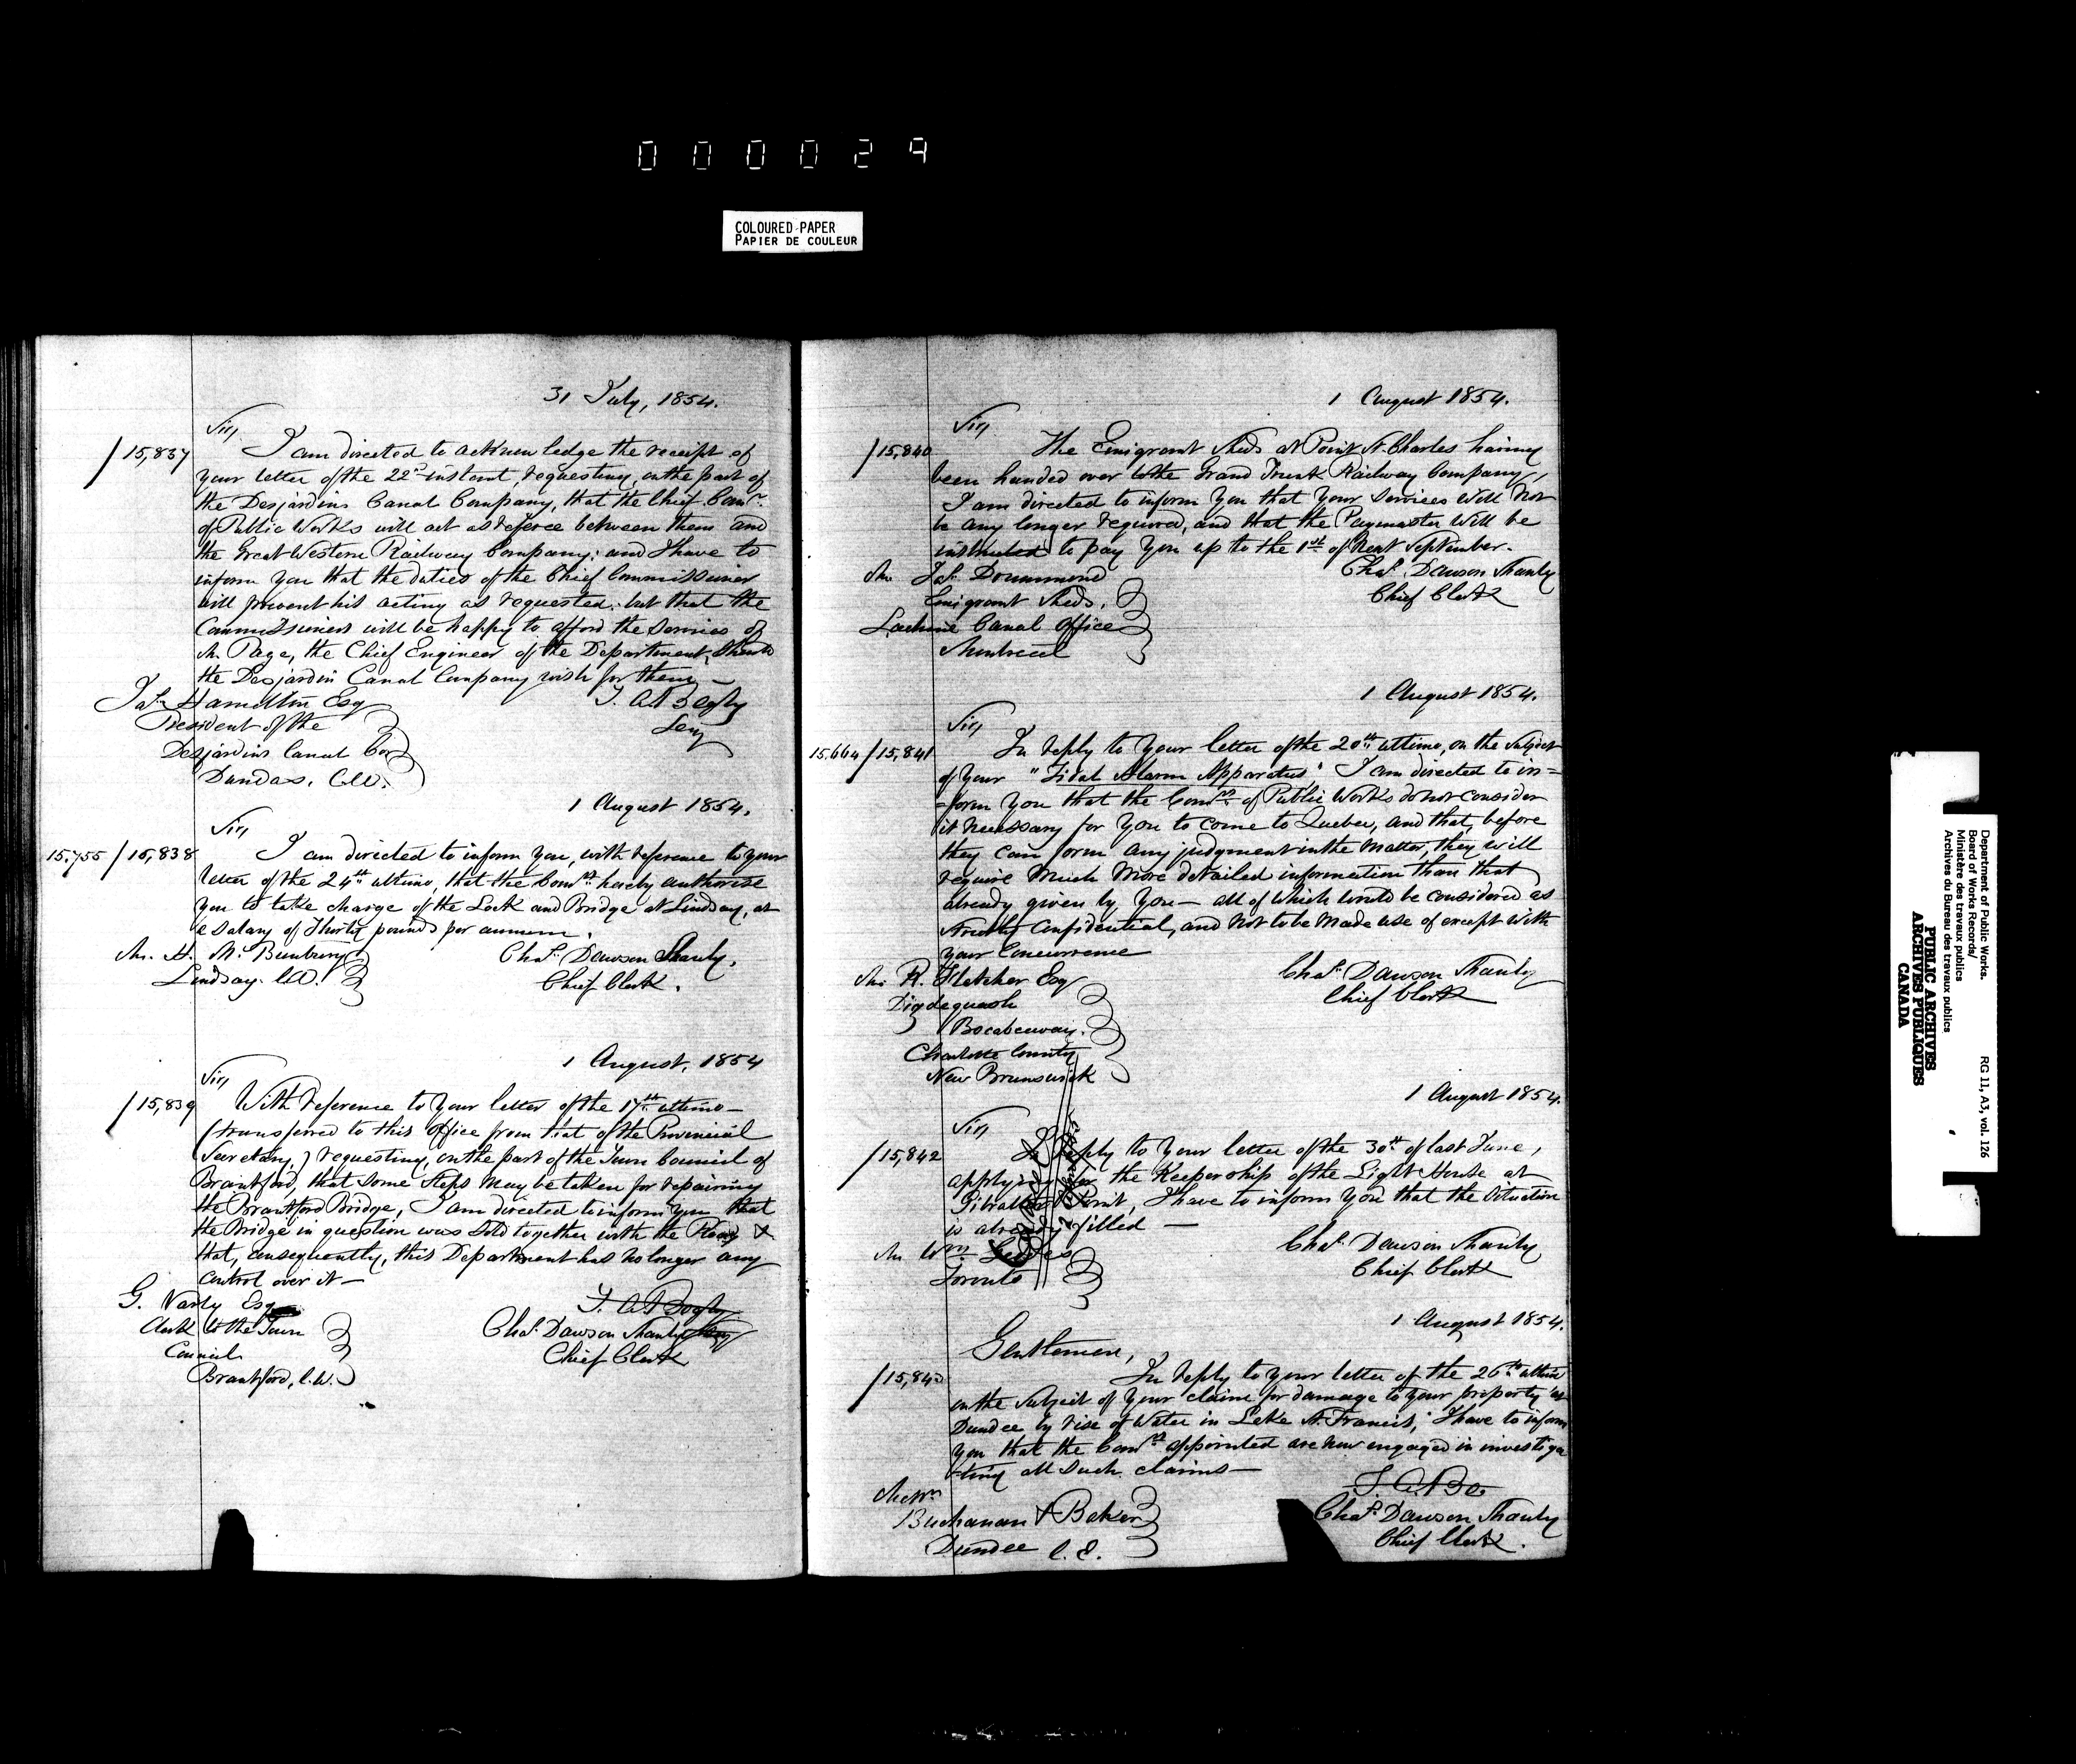 000029
COLOURED PAPER
PAPIER DE COULEUR
31 July, 1854.
Sir,
/15,837 I am directed to acknowledge the receipt of
your letter of the 22nd instant, requesting, on the part of
the Desjardins Canal Company, that the Chief Comr.
of Public Works will act as referee between them and
the Great Western Railway Company; and I have to
inform you that the duties of the Chief Commissioner
will prevent his acting as requested; but that the
Commissioners will be happy to afford the services of
Mr. Page, the Chief Engineer of the Department, should
the Desjardin Canal Company wish for them —
Jas. Hamilton Esq
T. A. Begly
President of the
Secy
Desjardins Canal Co.
Dundas. C.W.
1 August 1854.
Sir,
15.755 /15,838 I am directed to inform you, with reference to your
letter of the 24th ultimo, that the Comrs. hereby authorise
you to take charge of the Lock and Bridge at Lindsay, at
a salary of Thirty pounds per annum.
Mr. H. M. Bunbury
Chas. Dawson Shanly,
Lindsay. C.W.
Chief Clerk.
1 August, 1854
Sir,
/15,839 With reference to your letter of the 17th ultimo —
(transferred to this Office from that of the Provincial
Secretary,) requesting, on the part of the Town Council of
Brantford, that some steps may be taken for repairing
the Brantford Bridge, I am directed to inform you that
the Bridge in question was sold together with the Road &
that, consequently, this Department has no longer any
control over it —
G. Varly Esq
T. A. Begly
Clerk to the Town
Chas. Dawson Shanly Secy
Council
Chief Clerk
Brantford, C.W.
1 August 1854.
Sir,
/15,840 The Emigrant Sheds at Point St. Charles having
been handed over to the Grand Trunk Railway Company,
I am directed to inform you that your services will not
be any longer required, and that the Paymaster will be
instructed to pay you up to the 1st of next September.
Mr. Jas. Drummond
Chas. Dawson Shanly
Emigrant Sheds,
Chief Clerk
Lachine Canal Office
Montreal
1 August 1854.
Sir,
15.664 /15,841 In reply to your letter of the 20th ultimo, on the subject
of your "Tidal Alarm Apparatus" I am directed to in=
=form you that the Comrs. of Public Works do not consider
it necessary for you to come to Quebec, and that, before
they can form any judgment in the matter, they will
require much more detailed information than that
already given by you — all of which would be considered as
strictly confidential, and not to be made use of except with
your concurrence
Mr. R. Fletcher Esq
Chas. Dawson Shanly
Digdeguash
Chief Clerk
Bocabeeway.
Charlotte County
New Brunswick
1 August 1854.
Sir,
/15,842 In reply to your letter of the 30th of last June,
applying for the Keepership of the Light House at
Gibraltar Point, I have to inform you that the situation
is already filled —
Mr. Wm.
Chas. Dawson Shanly
Toronto
Chief Clerk
1 August 1854.
Gentlemen,
/15,843 In reply to your letter of the 26th ultimo
on the subject of your claim for damage to your property at
Dundee by rise of Water in Lake St. Francis, I have to inform
you that the Comrs. appointed are now engaged in investiga
-ting all such claims —
T. A. Be
Messrs
Buchanan & Baker
Chas. Dawson Shanly
Dundee C.E.
Chief Clerk.
Department of Public Works. RG 11, A3, vol. 126
Board of Works Records/
Ministère des travaux publics
Archives du Bureau des travaux publics
PUBLIC ARCHIVES
ARCHIVES PUBLIQUES
CANADA